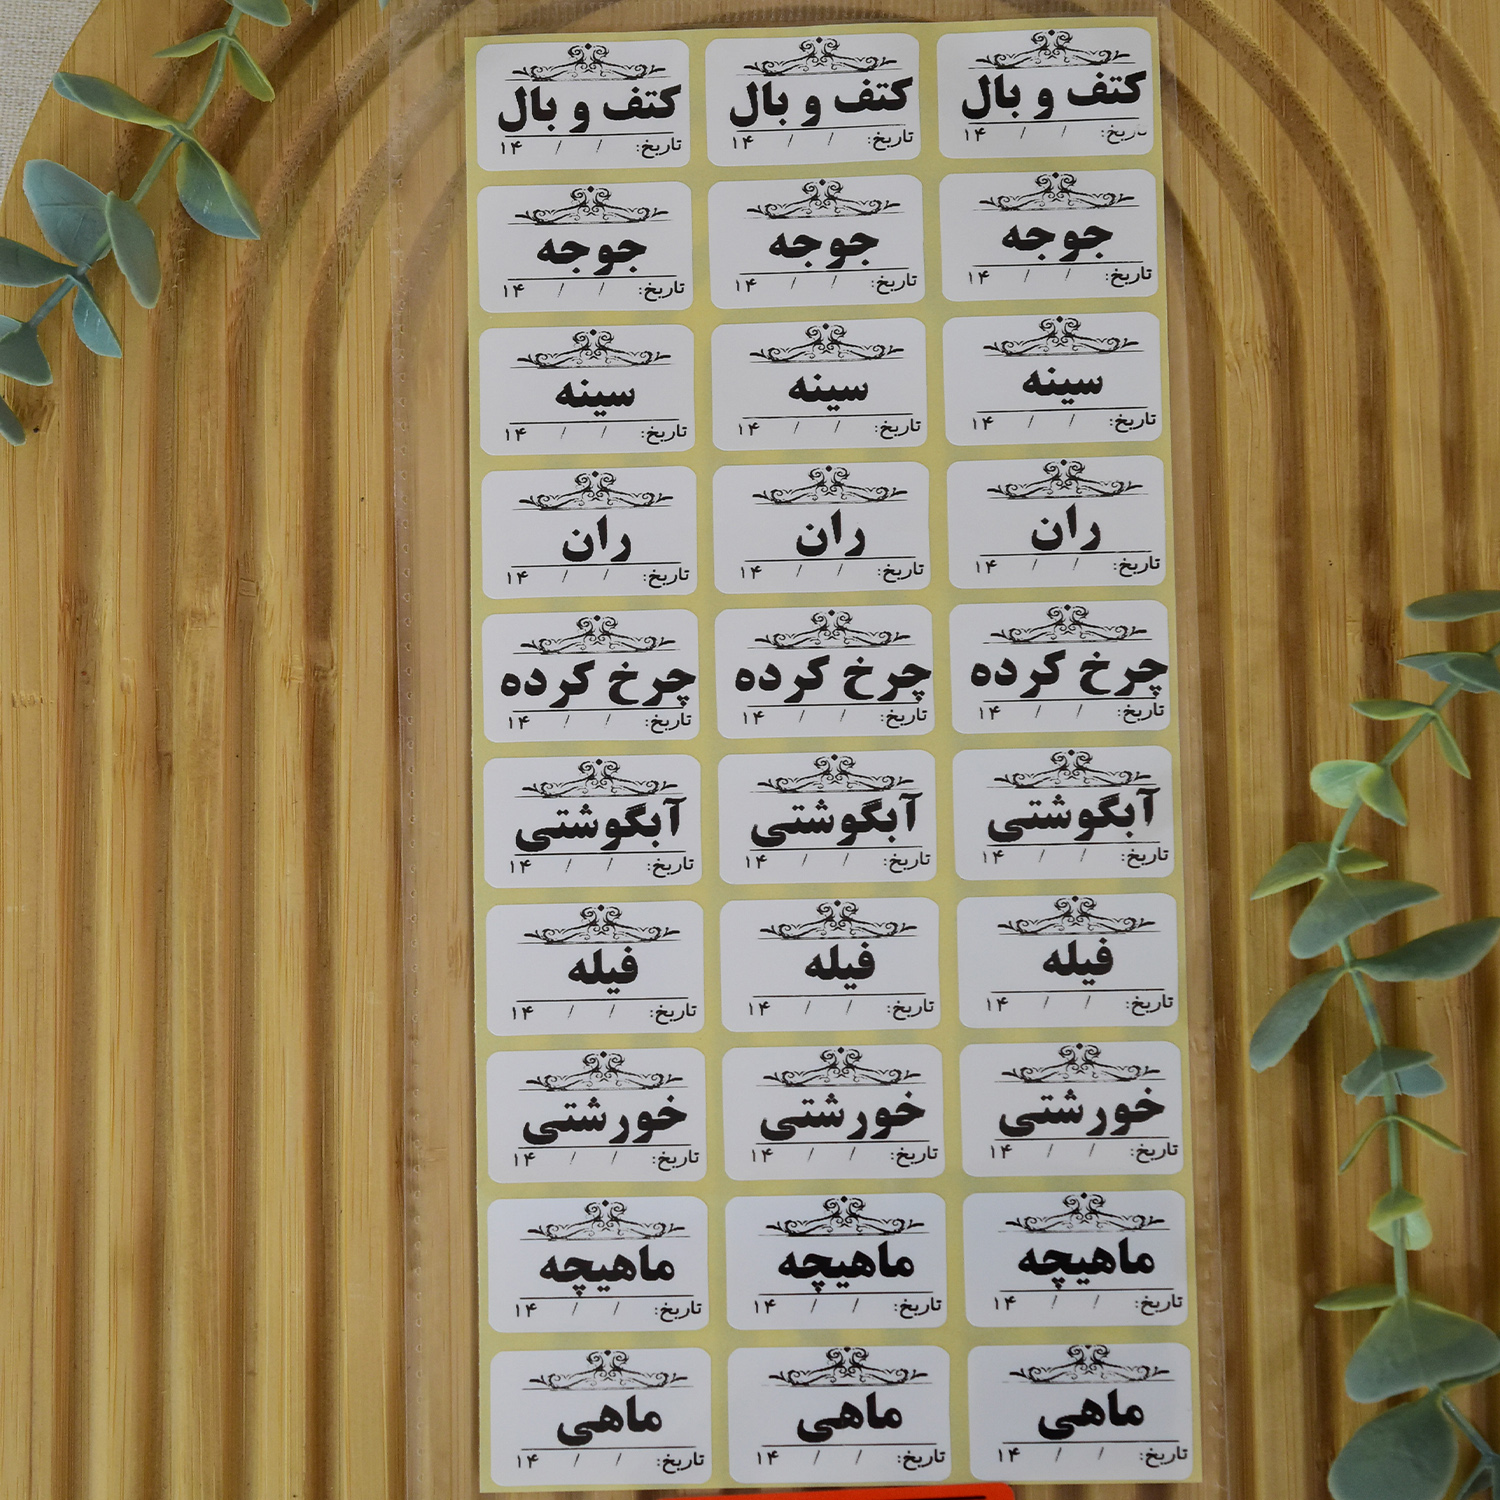 کتف و بال
تاریخ: / / ۱۴
کتف و بال
تاریخ: / / ۱۴
کتف و بال
تاریخ: / / ۱۴
جوجه
تاریخ: / / ۱۴
جوجه
تاریخ: / / ۱۴
جوجه
تاریخ: / / ۱۴
سینه
تاریخ: / / ۱۴
سینه
تاریخ: / / ۱۴
سینه
تاریخ: / / ۱۴
ران
تاریخ: / / ۱۴
ران
تاریخ: / / ۱۴
ران
تاریخ: / / ۱۴
چرخ کرده
تاریخ: / / ۱۴
چرخ کرده
تاریخ: / / ۱۴
چرخ کرده
تاریخ: / / ۱۴
آبگوشتی
تاریخ: / / ۱۴
آبگوشتی
تاریخ: / / ۱۴
آبگوشتی
تاریخ: / / ۱۴
فیله
تاریخ: / / ۱۴
فیله
تاریخ: / / ۱۴
فیله
تاریخ: / / ۱۴
خورشتی
تاریخ: / / ۱۴
خورشتی
تاریخ: / / ۱۴
خورشتی
تاریخ: / / ۱۴
ماهیچه
تاریخ: / / ۱۴
ماهیچه
تاریخ: / / ۱۴
ماهیچه
تاریخ: / / ۱۴
ماهی
تاریخ: / / ۱۴
ماهی
تاریخ: / / ۱۴
ماهی
تاریخ: / / ۱۴